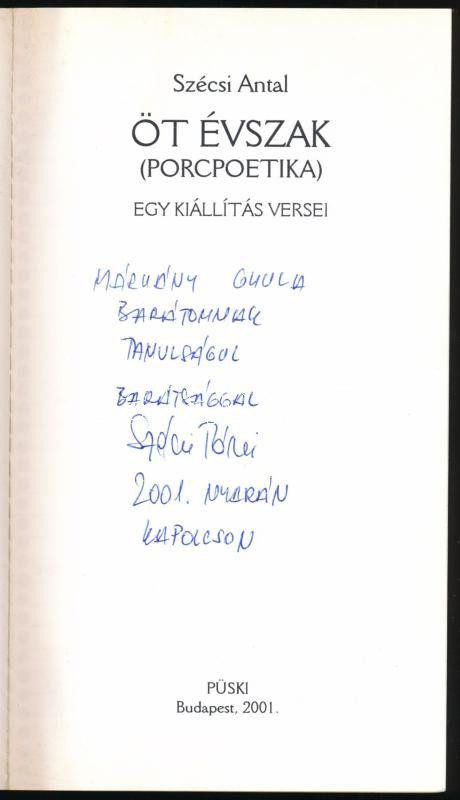 Szécsi Antal
ÖT ÉVSZAK
(PORCPOETIKA)
EGY KIÁLLÍTÁS VERSEI
MÁRVÁNY GYULA
BARÁTOMNAK
TANULSÁGUL
BARÁTSÁGGAL
Szécsi
2001. NYARÁN
KAPOLCSON
PÜSKI
Budapest, 2001.